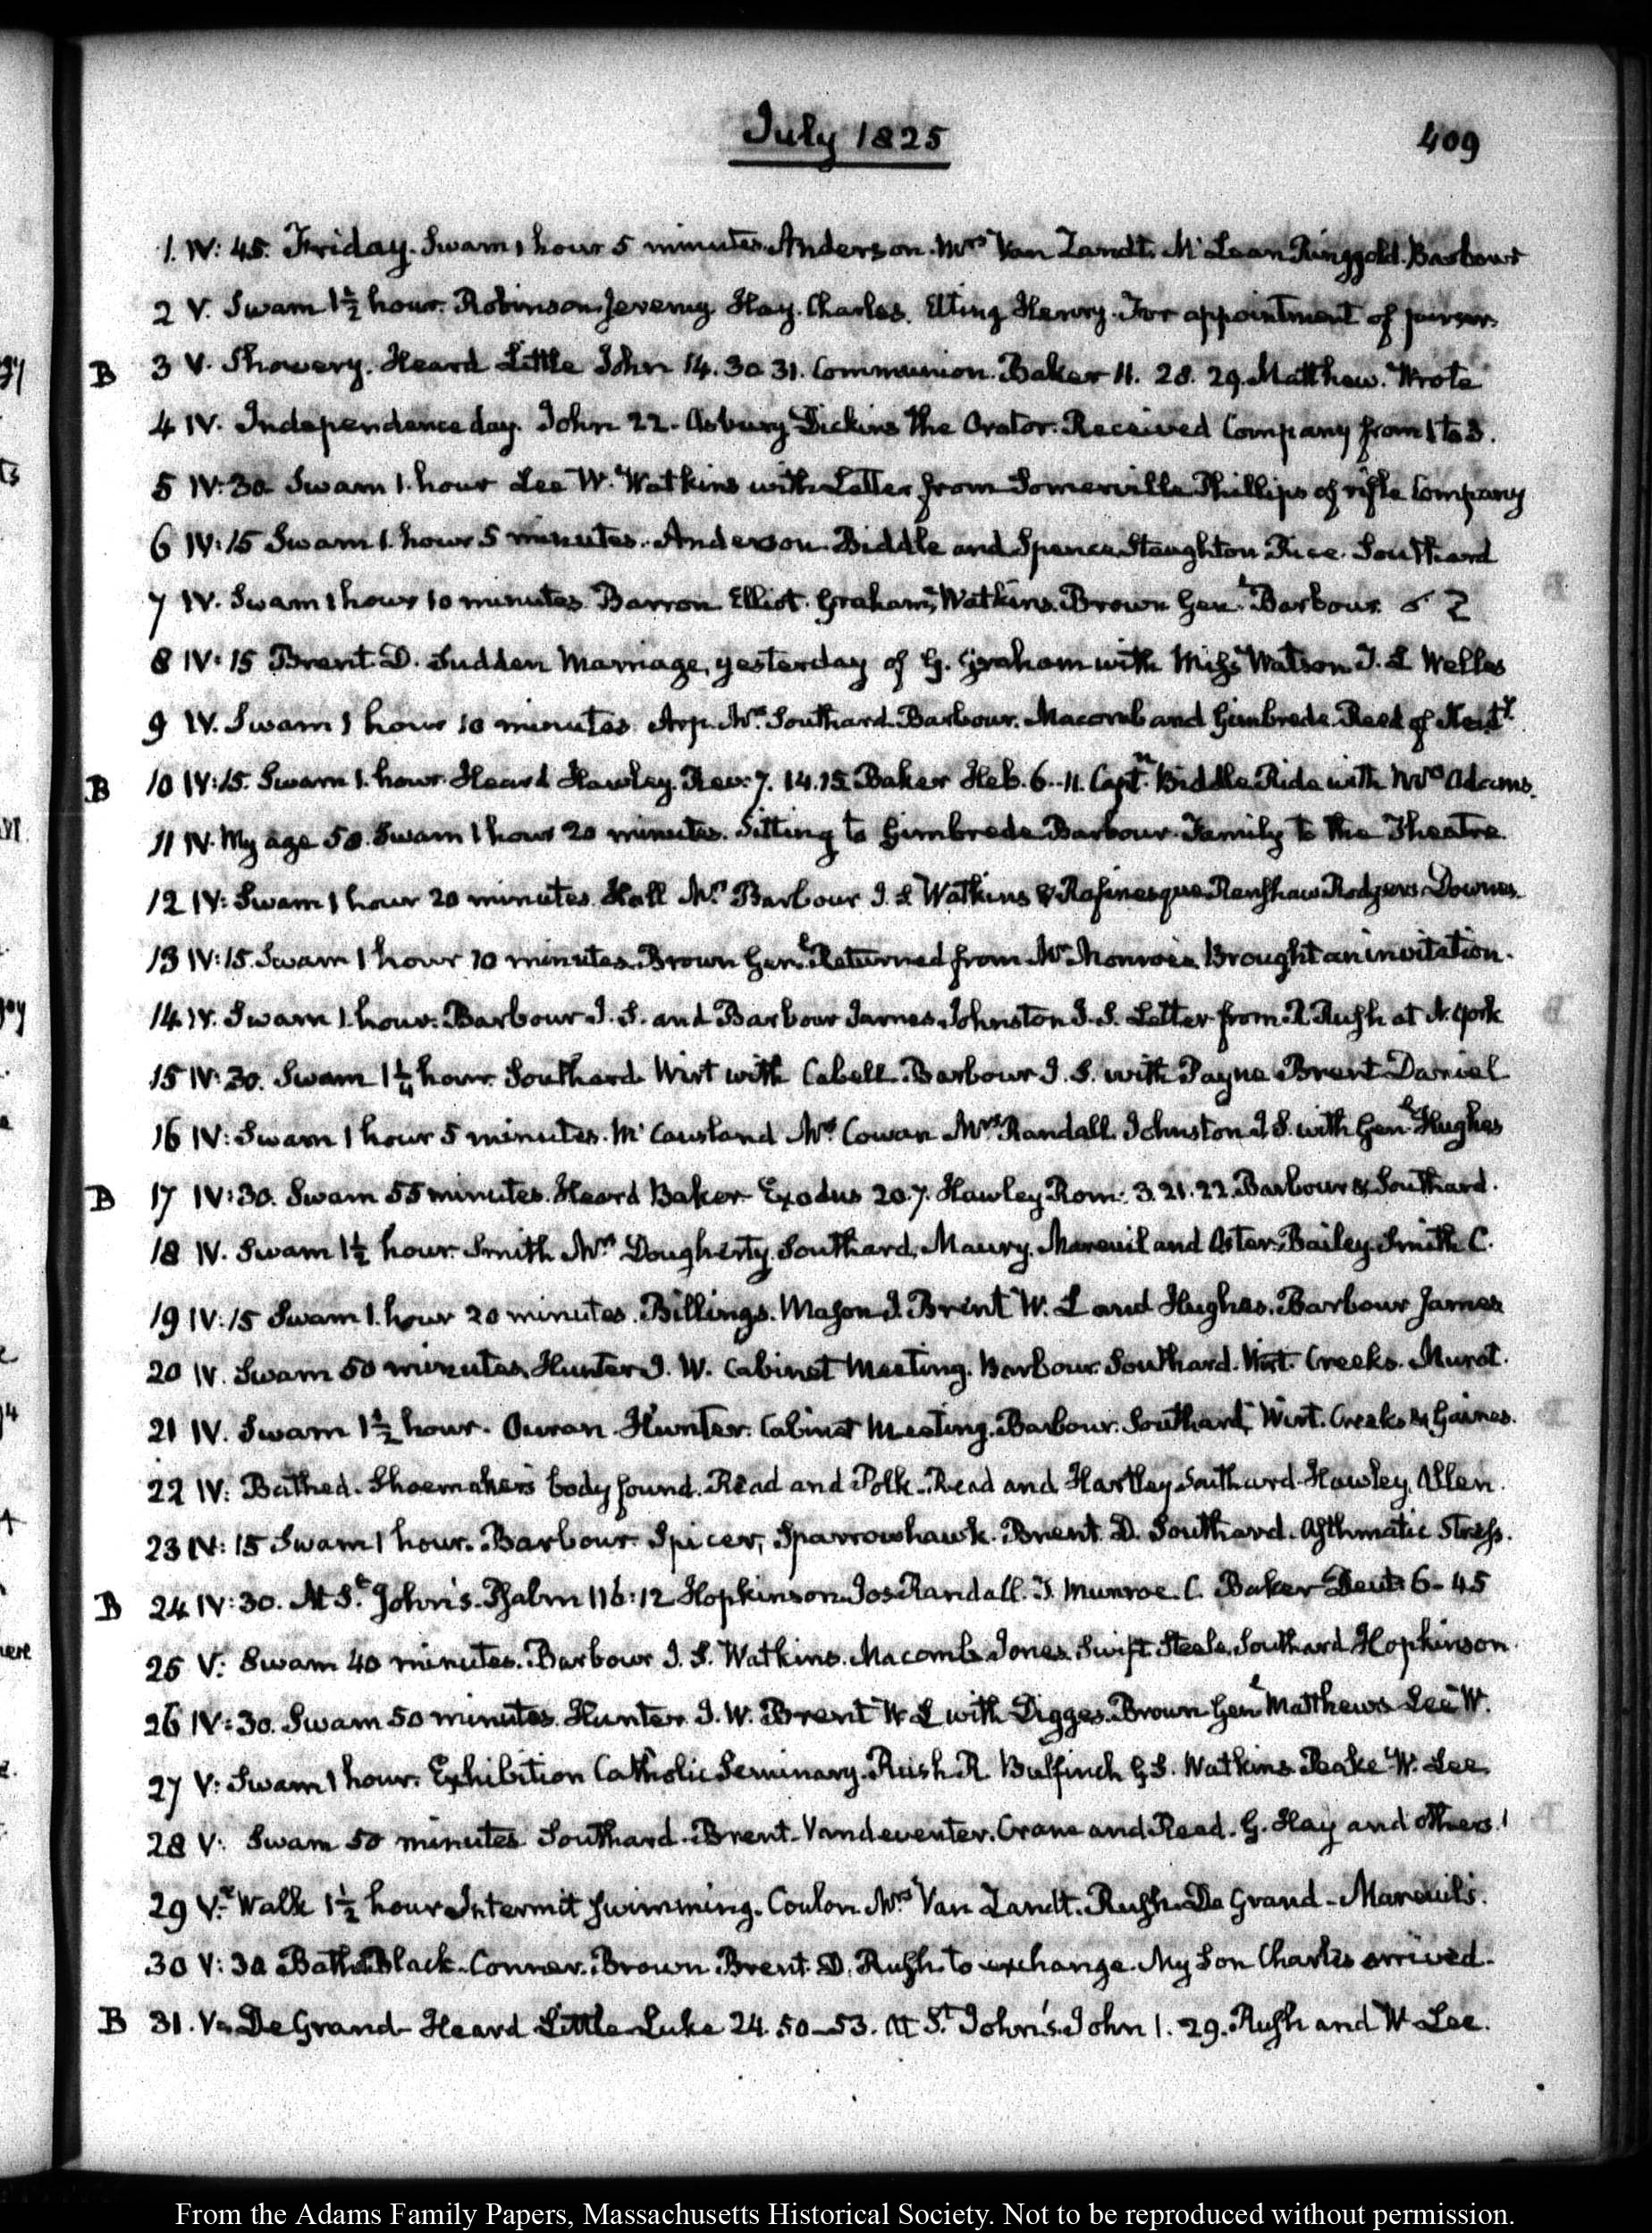 July 1825
409
1. IV: 45. Friday. Swam 1 hour 5 minutes. Anderson. Mrs Van Zandt. McLean Ringgold. Barbour
2 V. Swam 1½ hour. Robinson Jeremy Hay. Charles. Elting Henry. For appointment of purser.
B 3 V. Showery. Heard Little John 14. 30 31. Communion. Baker 11. 28. 29. Matthew. Wrote
4 IV. Independence day. John 22. Asbury Dickins the Orator. Received Company from 1 to 3.
5 IV:30. Swam 1. hour Lee W. Watkins with Letter from Somerville Phillips of rifle Company
6 IV:15 Swam 1. hour 5 minutes. Anderson. Biddle and Spence. Staughton Rice. Southard
7 IV. Swam 1 hour 10 minutes. Barron Elliot. Graham, Watkins. Brown Genl. Barbour.
8 IV: 15 Brent. D. Sudden Marriage, yesterday of G. Graham with Miss Watson J. L Welles
9 IV. Swam 1 hour 10 minutes. Arp. Mr. Southard. Barbour. Macomb and Gimbrede. Reed of Kenty.
B 10 IV:15. Swam 1. hour. Heard Hawley. Rev: 7. 14.15. Baker Heb. 6.. 11. Captn. Biddle. Ride with Mrs Adams.
11 IV. My age 58. Swam 1 hour 20 minutes. Sitting to Gimbrede Barbour. Family to the Theatre.
12 IV: Swam 1 hour 20 minutes. Hall Mrs. Barbour J. S Watkins & Rafinesque Renshaw Rodgers Downes.
13 IV:15. Swam 1 hour 10 minutes. Brown Genl. Returned from Mr Monroe's. Brought an invitation.
14. IV. Swam 1. hour. Barbour J. S. and Barbour James. Johnston J. S. Letter from R Rush at N. York
15 IV: 30. Swam 1¼ hour. Southard. Wirt with Cabell. Barbour J. S. with Payne Brent Daniel
16 IV: Swam 1 hour 5 minutes. McCausland Mrs. Cowan Mrs. Randall. Johnston J. S. with Genl. Hughes
B 17 IV:30. Swam 55 minutes. Heard Baker Exodus 20.7. Hawley. Rom. 3. 21. 22. Barbour & Southard.
18 IV. Swam 1½ hour. Smith Mrs Dougherty. Southard, Maury, Mareuil and Aster. Bailey. Smith C.
19 IV:15 Swam 1. hour 20 minutes. Billings. Mason J. Brent W. L and Hughes. Barbour James
20 IV. Swam 50 minutes. Hunter J. W. Cabinet Meeting. Barbour. Southard. Wirt. Creeks. Murat.
21 IV. Swam 1½ hour. Hunter. Cabinet Meeting. Barbour. Southard, Wirt. Creeks & Gaines.
22 IV: Bathed. Shoemaker's body found. Read and Polk. Read and Hartley Southard. Hawley, Allen.
23 IV: 15 Swam 1 hour. Barbour. Spicer, Sparrowhawk. Brent. D. Southard. Asthmatic Stress.
B 24 IV:30. At St. John's. Psalm 116:12 Hopkinson Jos Randall. T. Munroe. C. Baker Deut: 6. 4 5
25 V: Swam 40 minutes. Barbour J. S. Watkins. Macomb. Jones. Swift Steele. Southard Hopkinson.
26 IV:30. Swam 50 minutes. Hunter. J. W. Brent W. L with Digges. Brown Genl Matthews Lee W.
27 V: Swam 1 hour. Exhibition Catholic Seminary. Rush R. Bulfinch G. S. Watkins. Peake W. Lee
28 V: Swam 50 minutes Southard. Brent. Vandeventer. Crane and Read. G. Hay and others.
29 V. Walk 1½ hour Intermit swimming. Coulon. Mrs Van Zandt. Rush. De Grand. Mareuils.
30 V: 30 Bath. Black. Conner. Brown. Brent. D. Rush to exchange. My Son Charles arrived.
B 31. V. De Grand. Heard Little Luke 24. 50-53. At St John's John 1. 29. Rush and W Lee.
From the Adams Family Papers, Massachusetts Historical Society. Not to be reproduced without permission.